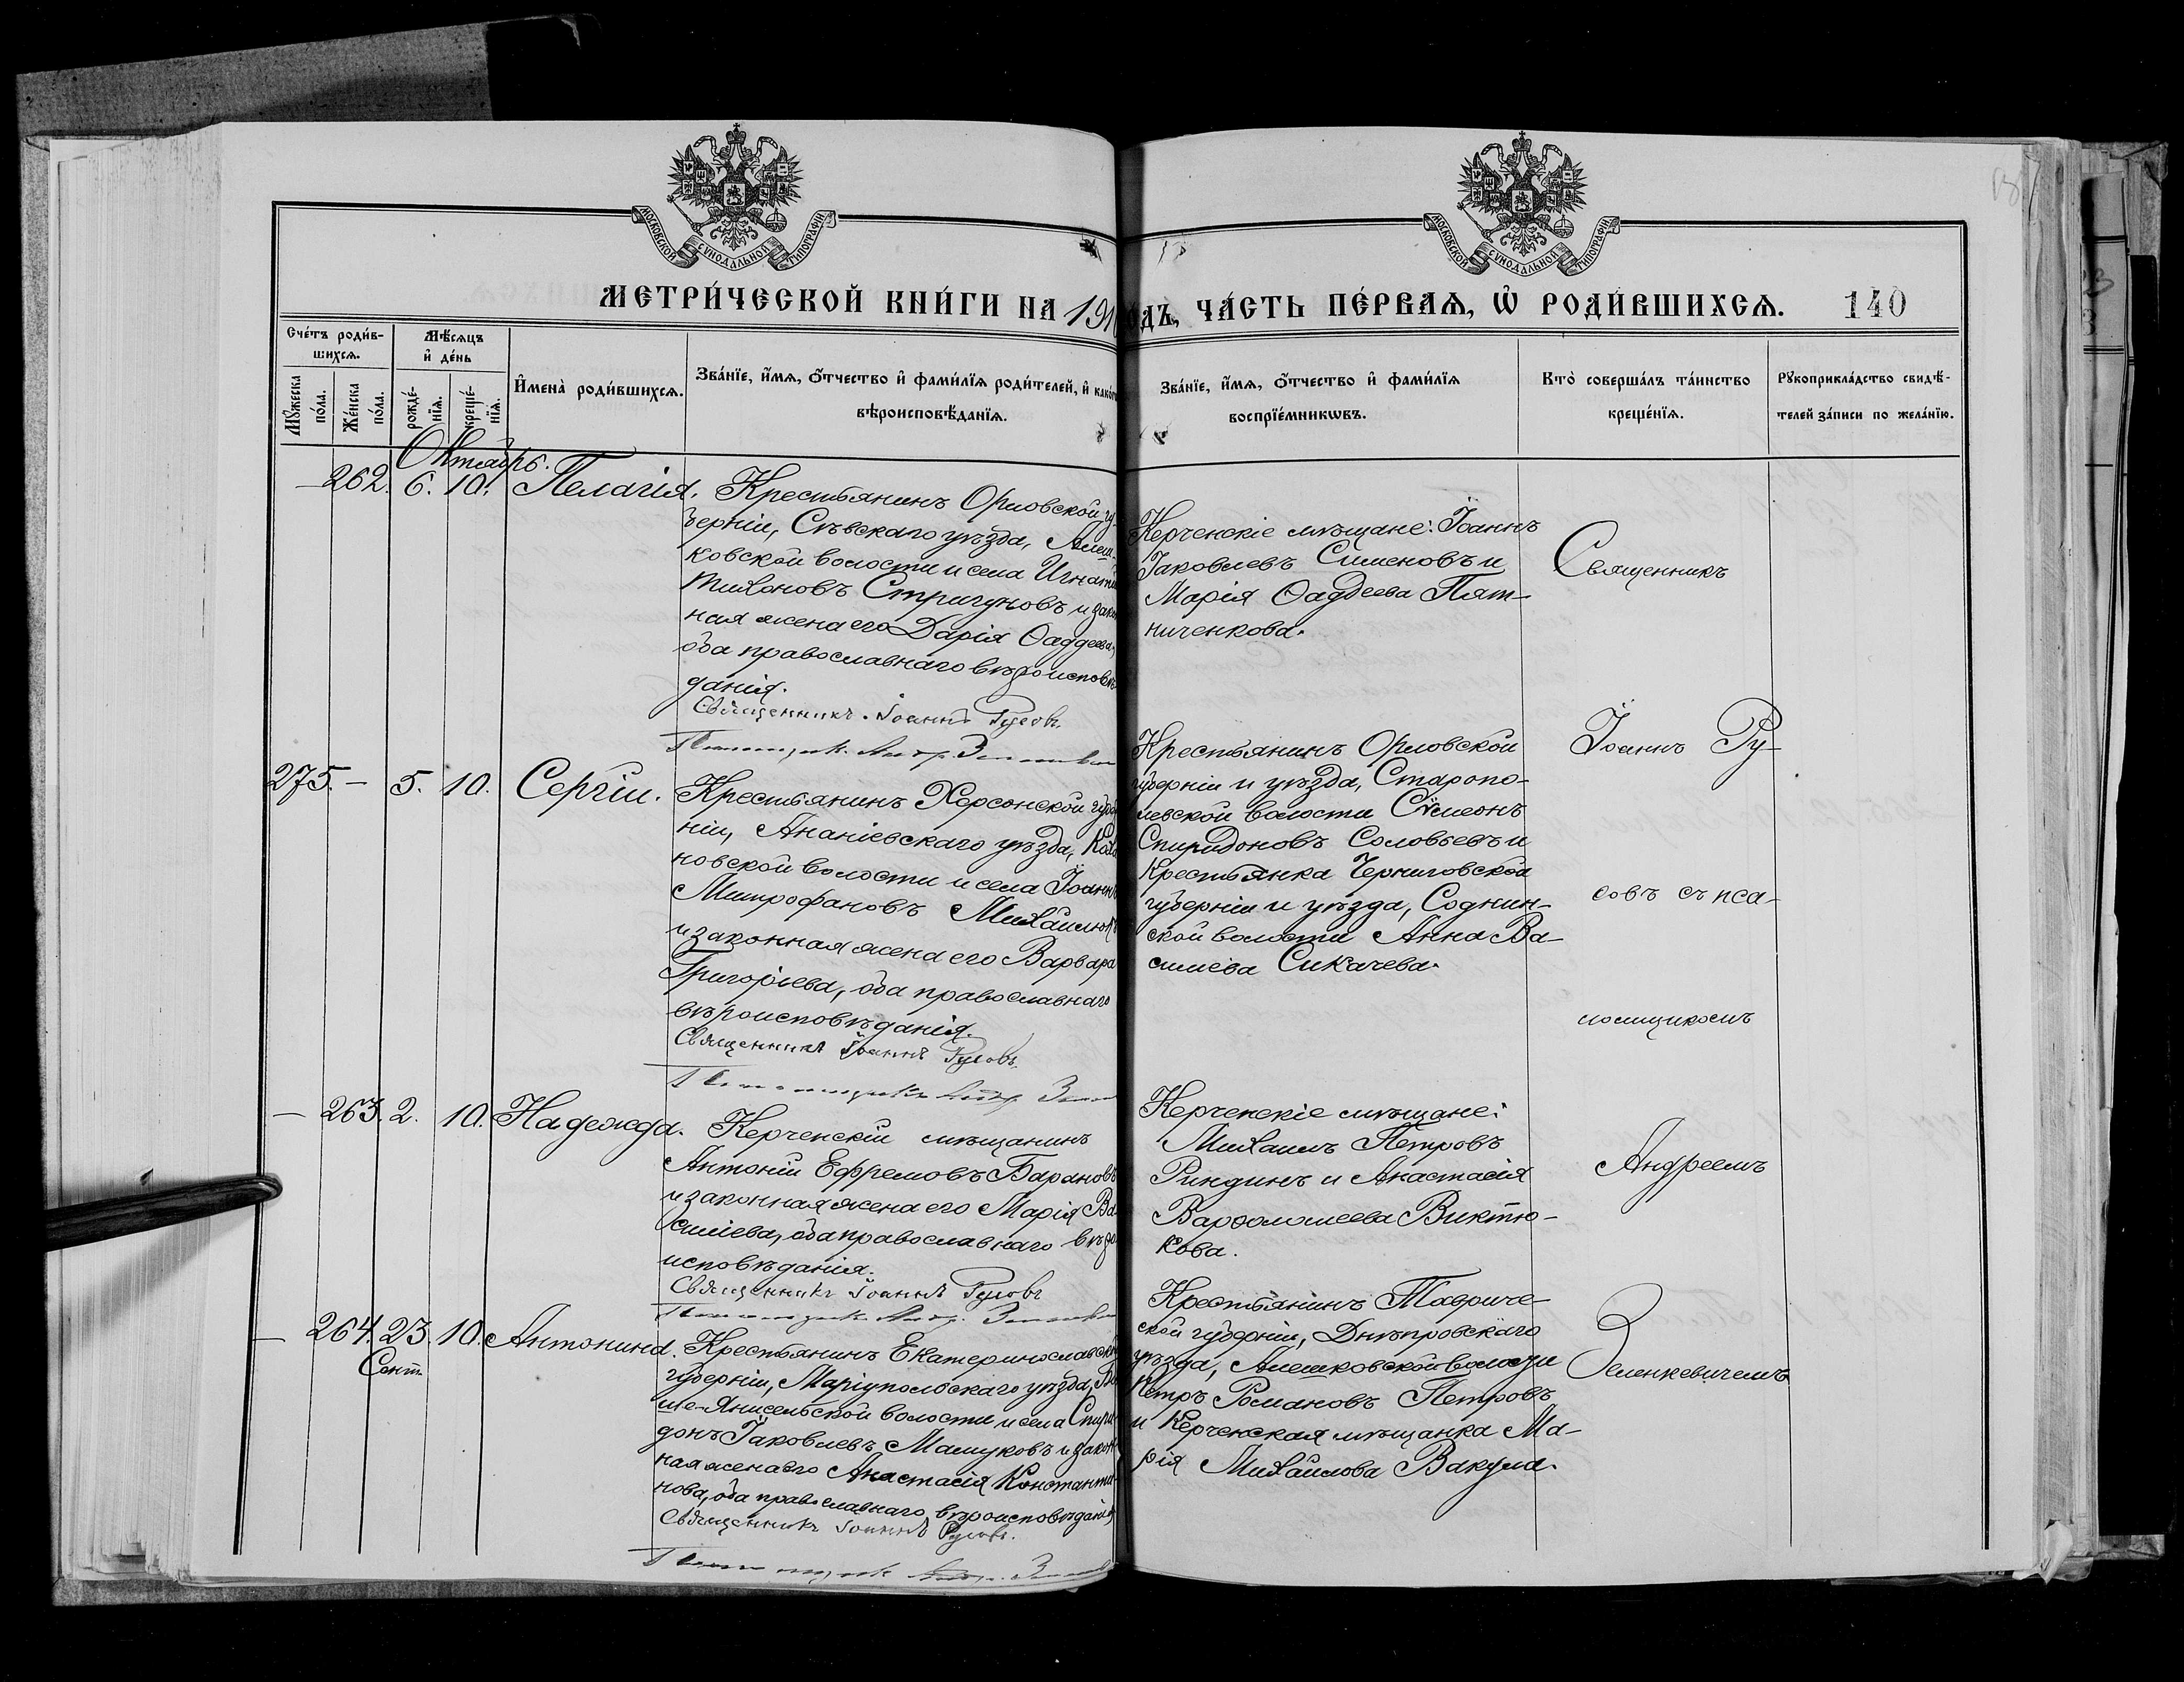 МОСКОВСКОЙ СѴНОДАЛЬНОЙ ТИПОГРАФІИ
МОСКОВСКОЙ СѴНОДАЛЬНОЙ ТИПОГРАФІИ
МЕТРИ́ЧЕСКОЙ КНИ́ГИ НА 191
ОДЪ, ЧА́СТЬ ПЕ́РВАѦ, Ѡ РОДИ́ВШИХСѦ. 140
Сче́тъ роди́в-
шихсѧ.
Мꙋ́жеска по́ла.
Же́нска по́ла.
Мѣ́сѧцъ
и҆ де́нь
рожде́-
нїѧ.
креще́-
нїѧ.
И҆мена̀ роди́вшихсѧ.
Зва́нїе, и҆́мѧ, ѻ҆́тчество и҆ фами́лїѧ роди́телей, и҆ како́г
вѣроисповѣ́данїѧ.
Зва́нїе, и҆́мѧ, ѻ҆́тчество и҆ фами́лїѧ
воспрїе́мникѡвъ.
Кто̀ соверша́лъ та́инство
креще́нїѧ.
Рꙋкоприкла́дство свидѣ́-
телей за́писи по жела́нїю.
Октябрь.
— 262. 6. 10. Пелагія.
Крестьянинъ Орловской гу-
берніи, Сѣвскаго уѣзда, Алеш-
ковской волости и села Игнаті
Тихоновъ Стригуновъ и зако
ная жена его Дарія Ѳаддеева,
оба православнаго вѣроисповѣ
данія.
Священникъ Іоаннъ Русовъ.
Псаломщикъ Андр.
Керченскіе мѣщане: Іоаннъ
Іаковлевъ Сименовъ и
Марія Ѳаддеева Пят-
ниченкова.
275. — 5. 10. Сергій.
Крестьянинъ Херсонской губер
ніи, Ананіевскаго уѣзда,
новской волости и села Іоаннъ
Митрофановъ Михайлюкъ
и законная жена его Варвара
Григоріева, оба православнаго
вѣроисповѣданія.
Священникъ Іоаннъ Русовъ.
Псаломщикъ Андр.
Крестьянинъ Орловской
губерніи и уѣзда, Старопо-
левской волости Сѷмеонъ
Спиридоновъ Соловьевъ и
крестьянка Черниговской
губерніи и уѣзда, Соднин-
ской волости Анна Ва-
силіева Сикачева.
— 263. 2. 10. Надежда.
Керченскій мѣщанинъ
Антоній Ефремовъ Барановъ
и законная жена его Марія Ва
силіева, оба православнаго вѣро
исповѣданія.
Священникъ Іоаннъ Русовъ
Псаломщикъ Андр.
Керченскіе мѣщане:
Михаилъ Петровъ
Риндинъ и Анастасія
Варѳоломеева Виктю-
кова.
— 264. 23. 10. Антонина.
Сент.
Крестьянинъ Екатеринославской
губерніи, Маріупольскаго уѣзда,
ше-Янисельской волости и села Спири
донъ Іаковлевъ Машуковъ и закон
ная жена его Анастасія Константи
нова, оба православнаго вѣроисповѣданія
Священникъ Іоаннъ Русовъ.
Псаломщикъ Андр.
Крестьянинъ Тавриче-
ской губерніи, Днѣпровскаго
уѣзда, Алешковской волости
Петръ Романовъ Петровъ
и Керченская мѣщанка Ма-
рія Михайлова Вакула.
Священникъ
Іоаннъ Ру-
совъ съ пса-
ломщикомъ
Андреемъ
Зеленкевичемъ